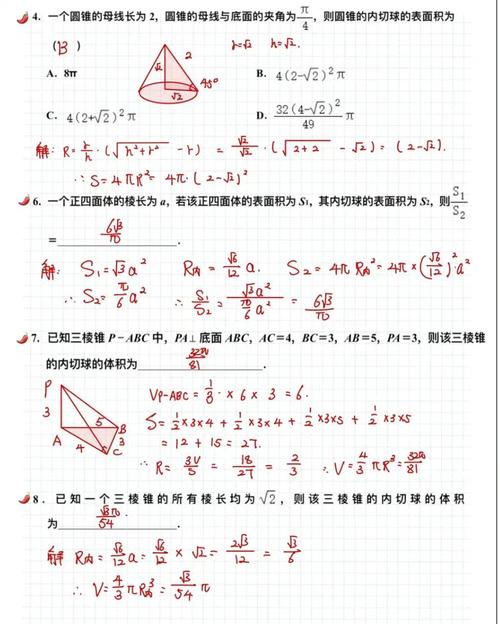 4. 一个圆锥的母线长为 2，圆锥的母线与底面的夹角为π/4，则圆锥的内切球的表面积为
（B） r=√2 h=√2
√2 2 √2 45°
A. 8π B. 4(2-√2)²π
C. 4(2+√2)²π D. 32(4-√2)²/49 π
解: R= r/h ·(√(h²+r²) - r) = √2/√2 ·(√(2+2) - √2) = (2-√2).
∴S=4πR²= 4π·(2-√2)²
6. 一个正四面体的棱长为 a，若该正四面体的表面积为 S₁，其内切球的表面积为 S₂，则 S₁/S₂
= 6√3/π .
解: S₁=√3a² R内= √6/12 a. S₂=4πR内²=4π×(√6/12)²·a²
∴ S₂= π/6 a² ∴ S₁/S₂ = √3a²/(π/6 a²) = 6√3/π
7. 已知三棱锥 P-ABC 中，PA⊥底面 ABC，AC=4，BC=3，AB=5，PA=3，则该三棱锥
的内切球的体积为 32π/81 .
P 3 A 5 B 4 3 C
VP-ABC= 1/3 × 6 × 3 = 6.
S= 1/2×3×4 + 1/2×3×4 + 1/2×3×5 + 1/2×3×5
= 12 + 15 = 27.
∴ R= 3V/S = 18/27 = 2/3 ∴ V= 4/3 πR³= 32π/81
8. 已知一个三棱锥的所有棱长均为 √2，则该三棱锥的内切球的体积
为 √3π/54 .
解 R内= √6/12 a= √6/12 × √2= 2√3/12 = √3/6
∴ V= 4/3 πR内³= √3/54 π